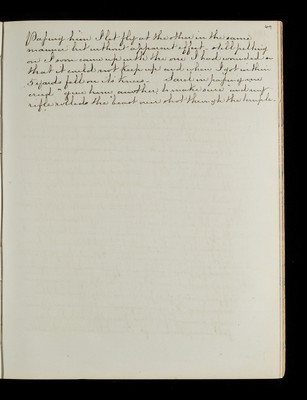 Passing him I let fly at the other in the same
manner but without apparent effect still pelting
on I soon came up with the one I had wounded so
that it could not keep up and when I got within
5 yards fell on its knees. in passing we
cried "give him another, to make sure" and my
rifle the beast once shot through the temple